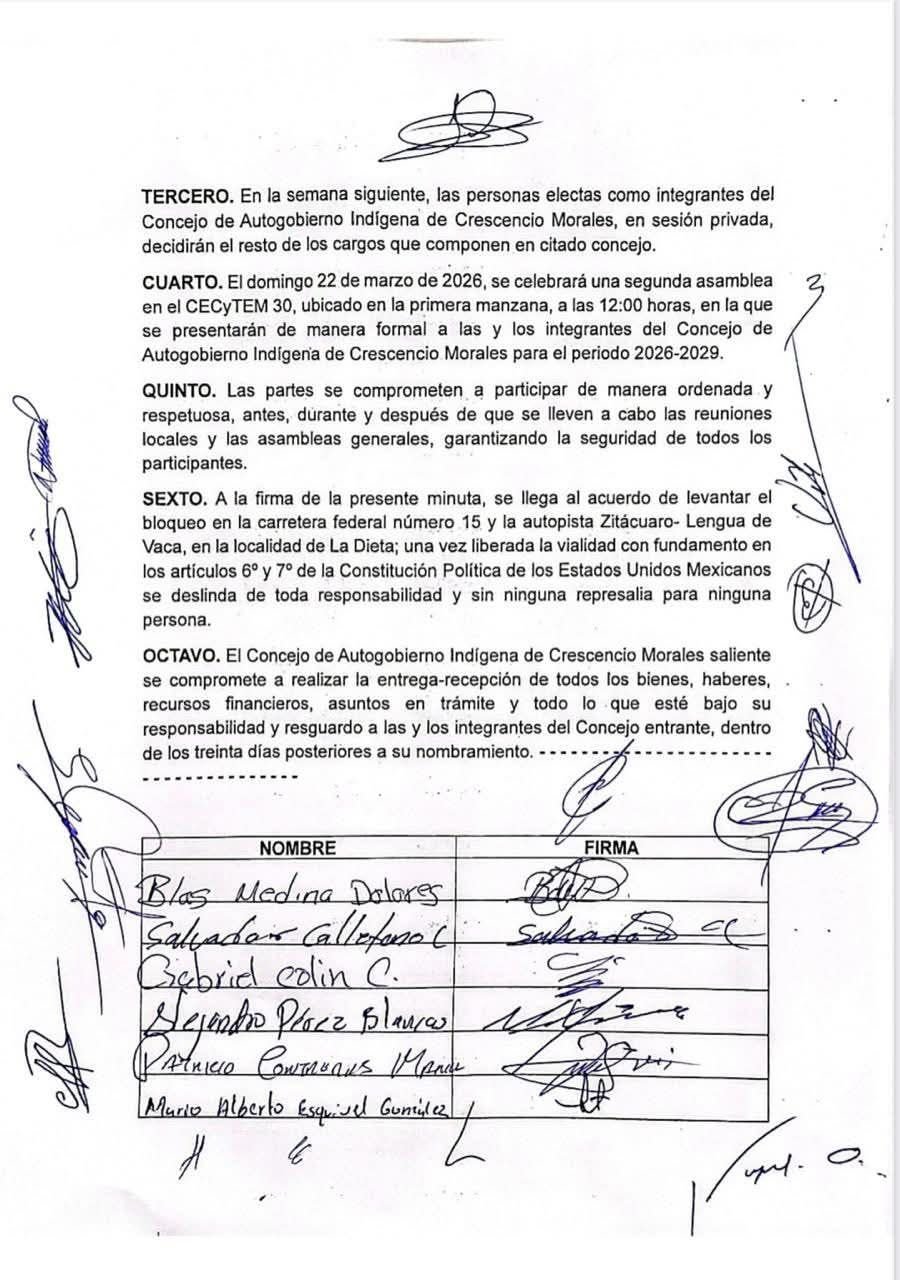 TERCERO. En la semana siguiente, las personas electas como integrantes del
Concejo de Autogobierno Indígena de Crescencio Morales, en sesión privada,
decidirán el resto de los cargos que componen en citado concejo.
CUARTO. El domingo 22 de marzo de 2026, se celebrará una segunda asamblea
en el CECyTEM 30, ubicado en la primera manzana, a las 12:00 horas, en la que
se presentarán de manera formal a las y los integrantes del Concejo de
Autogobierno Indígena de Crescencio Morales para el periodo 2026-2029.
QUINTO. Las partes se comprometen a participar de manera ordenada y
respetuosa, antes, durante y después de que se lleven a cabo las reuniones
locales y las asambleas generales, garantizando la seguridad de todos los
participantes.
SEXTO. A la firma de la presente minuta, se llega al acuerdo de levantar el
bloqueo en la carretera federal número 15 y la autopista Zitácuaro- Lengua de
Vaca, en la localidad de La Dieta; una vez liberada la vialidad con fundamento en
los artículos 6º y 7º de la Constitución Política de los Estados Unidos Mexicanos
se deslinda de toda responsabilidad y sin ninguna represalia para ninguna
persona.
OCTAVO. El Concejo de Autogobierno Indígena de Crescencio Morales saliente
se compromete a realizar la entrega-recepción de todos los bienes, haberes,
recursos financieros, asuntos en trámite y todo lo que esté bajo su
responsabilidad y resguardo a las y los integrantes del Concejo entrante, dentro
de los treinta días posteriores a su nombramiento. -----------------------
---------------
NOMBRE FIRMA
Blas Medina Dolores
Salvador
Gabriel Colin C.
Alejandro Pérez Blanco
Patricio Contreras
Mario Alberto Esquivel González